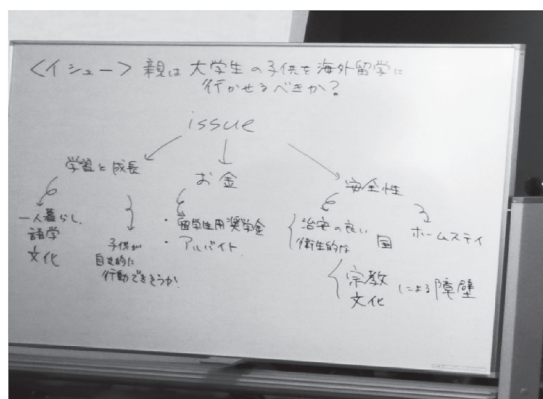 ＜イシュー＞ 親は大学生の子供を海外留学に
行かせるべきか？
issue
学習と成長
お金
安全性
一人暮らし、
語学
文化
子供が
自発的に
行動できそうか
・留学生用奨学金
・アルバイト
治安の良い
衛生的な
国
ホームステイ
宗教
文化
による障壁